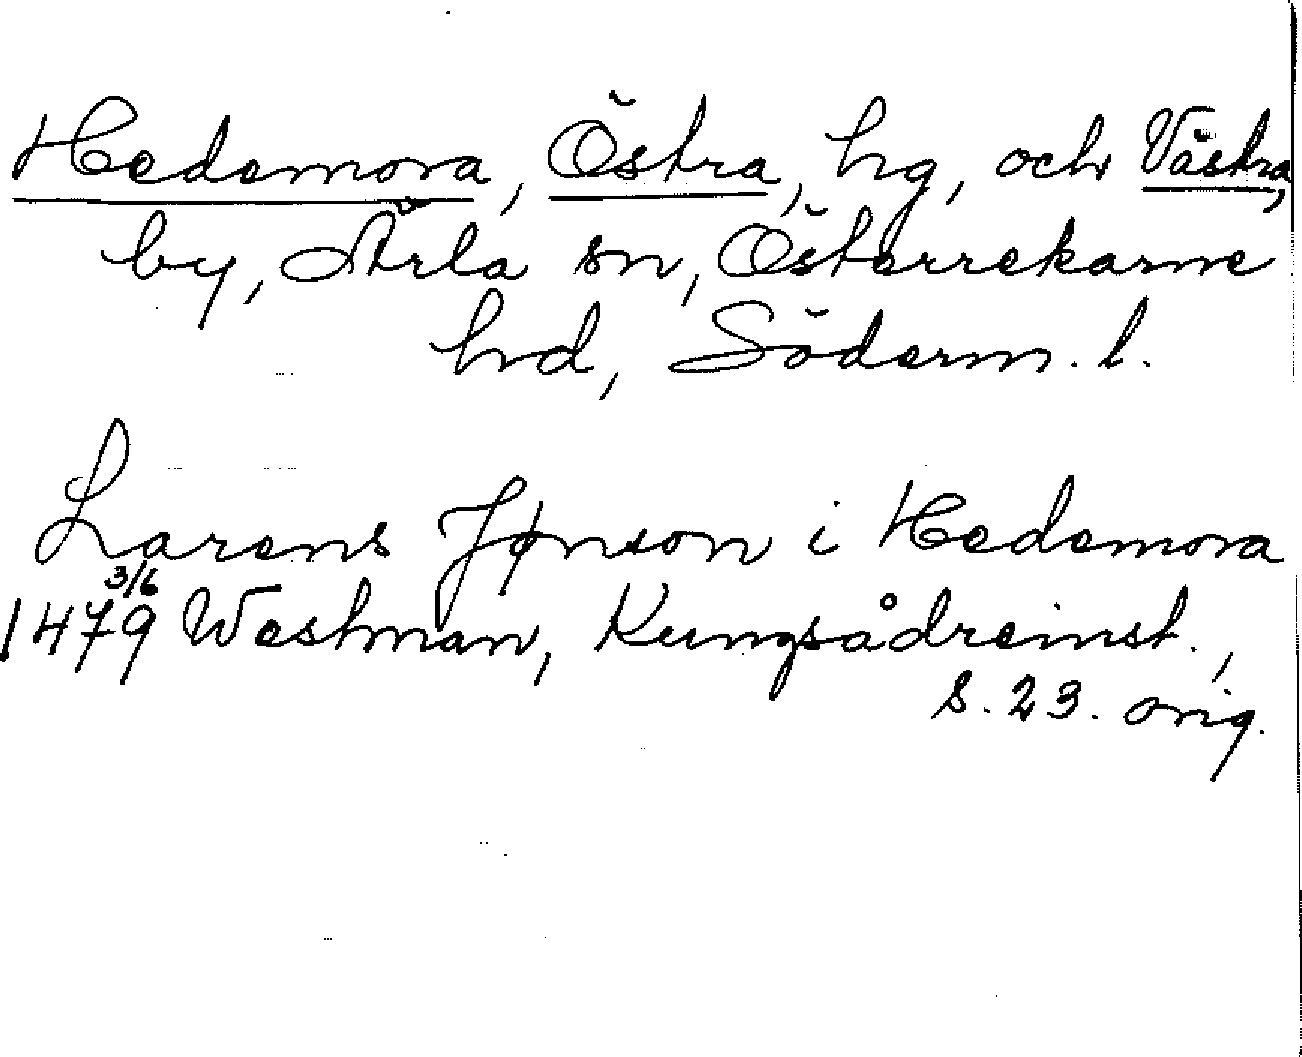 Hedemora, Östra, hg, och Västra,
by, Ärla sn, Österrekarne
hd, Söderm. l.
Larens Jønson i Hedemora
1479 3/6 Westman, Kungsådreinst.,
s. 23. orig.